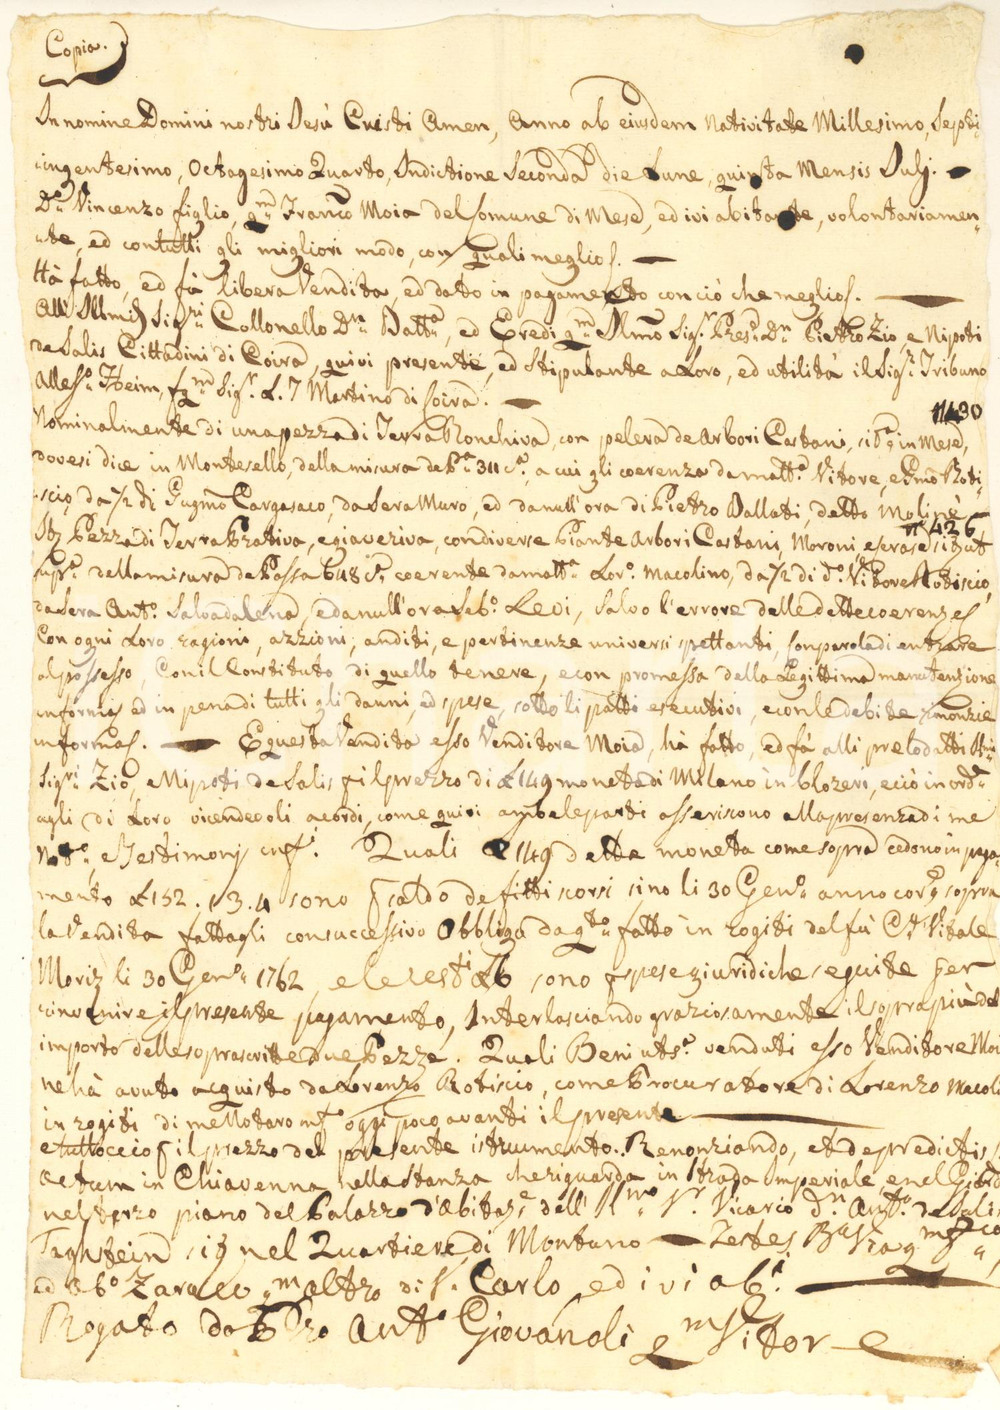 Copia.
In nomine Domini nostri Jesu Cristi Amen, Anno ab eiusdem Nativitate Millesimo, Septi-
ingentesimo, Octagesimo Quarto, Indictione Seconda die Lune, quinta Mensis Julij.
Dn Vincenzo figlio, qm Franco Moia del Comune di Mese, ed ivi abitante, volontariamen-
te, ed con tutti gli migliori modo, con quali meglio f.
Hà fatto, ed fà libera Vendita, ed dato in pagamento con ciò che meglio f.
Alli Illmi Sigri Collonello Dn Batta, ed Eredi qm Illmo Sigr Presd Dn Pietro Zio e Nipoti
de Salis Cittadini di Coira, quivi presente, ed stipulante a Loro, ed utilità il Sigr Tribuno
Allesso Heim, f qm Sigr L. T Martino di Coira.
N 430
Nominalmente di una pezza di Terra Ronchiva, con pelera de Arbori Castani, sita in Mese,
dove si dice in Montesello, della misura de Pa 311 Ca, a cui gli coerenza da matta Vitore, e Gmo Roti-
scio, da 1/2 dì Gugmo Cargasaco, da Sera Muro, ed da null'ora di Pietro Ballati, detto Molinè
N 426
It Pezza di Terra Prativa, e giaveriva, con diverse Piante Arbori Castani, Moroni, e prase sita ut
supr. della misura de Passa 648 Ca coerente da matta Lor. Macolino, da 1/2 di do Vitore Rotiscio,
da Sera Anto Salvadalena, ed a null'ora Sebo Levi, salvo l'errore delle dette coerenze f
Con ogni Loro ragioni, azzioni, anditi, e pertinenze universi spettanti, con parola di entrare
al possesso, Con il Constituto di quello tenere, e con promessa della Legittima manutenzione
in forma, ed in pena di tutti gli danni, ed spese, sotto li patti esecutivi, e con le debite rinonzie
in forma f. E questa Vendita esso Venditore Moia, hà fatto, ed fà alli prelodatti Illmi
Sigri Zio, e Nipoti de Salis f il prezzo di L 149 moneta di Milano in blozeri, e ciò in orde
agli di Loro vicendevoli acordi, come quivi ambe le parti asseriscono alla presenza di me
Noto, e Testimonj infr. Quali L 149 dette moneta come sopra cedono in paga-
mento L 152. 13. 4 sono f saldo de fitti scorsi sino li 30 Geno anno corre sopra
la Vendita fattagli con successivo Obbligo da qto fatto in rogiti del fù Cr Vitale
Moriz li 30 Geno 1762, e le resti L 6 sono f spese giuridiche seguite per
convenire il presente pagamento, Interlasciando graziosamente il soprapiù del
importo delle soprascritte due Pezze. Quali Beni uts. venduti esso Venditore Moi
ne hà avuto acquisto da Lorenzo Rotiscio, come Procuratore di Lorenzo Macoli
in rogiti di me Notaro infro oggi poco avanti il presente
e tutto ciò f il prezzo del presente istrumento. Renonziando, et de predictis f
Actum in Chiavenna nella stanza che riguarda in Strada Imperiale, e nel Giard
nel terzo piano del Palazzo d'Abitaze dell' Illmo Sr. Vicario Dn Anto de Salis
Tagstein, sita nel Quartiere di Montano Testes Bta
ed Abo Zarucco qm altro di S. Carlo ed ivi abi.
Rogato da Pro Anto Giovanoli qm Vitor